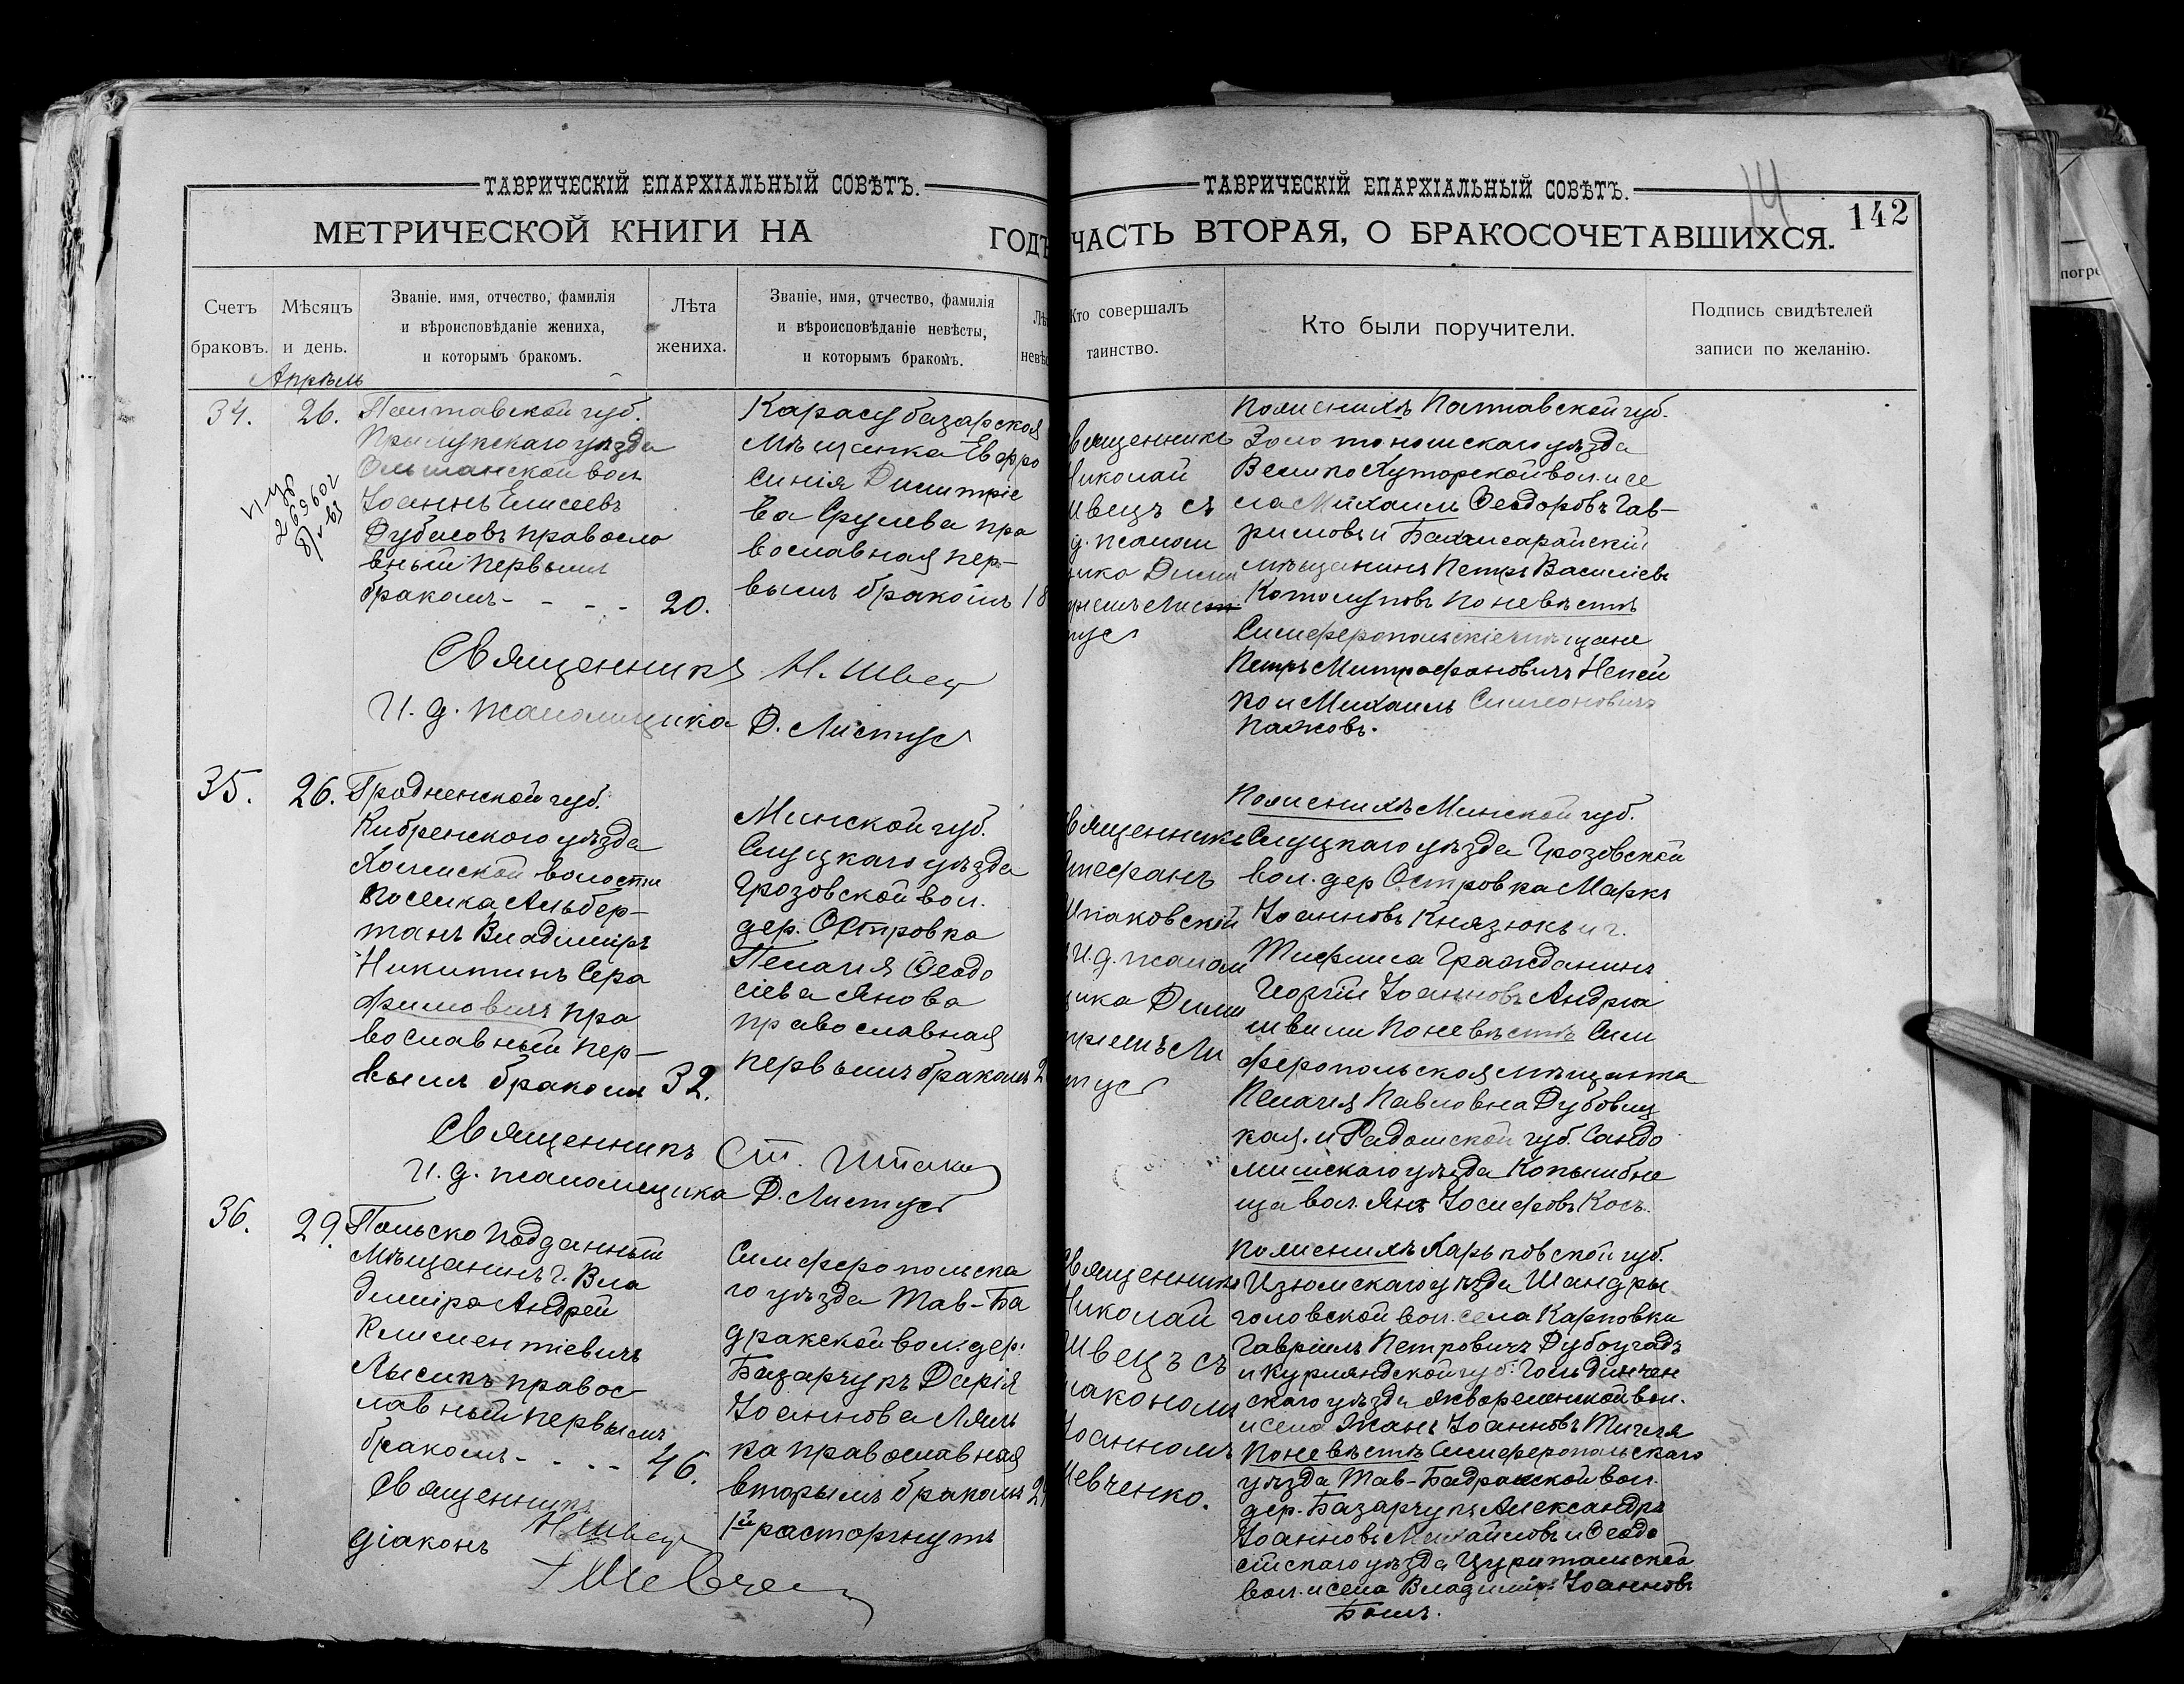 ТАВРИЧЕСКІЙ ЕПАРХІАЛЬНЫЙ СОВѢТЪ.
МЕТРИЧЕСКОЙ КНИГИ НА ГОДЪ
Счетъ браковъ.
Мѣсяцъ и день.
Званіе, имя, отчество, фамилія
и вѣроисповѣданіе жениха,
и которымъ бракомъ.
Лѣта жениха.
Званіе, имя, отчество, фамилія
и вѣроисповѣданіе невѣсты,
и которымъ бракомъ.
Апрѣль
34.
26.
Полтавской губ.
Прилукскаго уѣзда
Ольшанской вол.
Іоаннъ Елисеевъ
Дубасовъ правосла
вный первымъ
бракомъ - - - - 20.
Карасубазарская
Мѣщанка Евфро
синія Димитріе
ва Сруева пра
вославная пер-
вымъ бракомъ 18
Священникъ Н. Швец
И. д. псаломщика Д. Листус
35.
26.
Гродненской губ.
Кобренского уѣзда
волости
Поселка Альбер-
танъ Владиміръ
Никитинъ Сера
фимовичъ пра
вославный пер-
вымъ бракомъ 32.
Минской губ.
Слуцкаго уѣзда
Грозовской вол.
дер. Островка
Пелагія Ѳеодо
сіева Янова
православная
первымъ бракомъ 2
Священникъ Ст. Шпаков
И. д. псаломщика Д. Листус
36.
29.
Польско подданный
Мѣщанинъ г. Вла
диміра Андрей
Климентіевичъ
Лысикъ правос-
лавный первымъ
бракомъ - - - - 46.
Симферопольска
го уѣзда Тав-Ба
дракской вол. дер.
Базарчукъ Дарія
Іоаннова Лямъ
ка православная
вторымъ бракомъ 24
1й расторгнутъ
Священникъ Н. Швец
діаконъ І. Шевчен
ТАВРИЧЕСКІЙ ЕПАРХІАЛЬНЫЙ СОВѢТЪ.
142
ЧАСТЬ ВТОРАЯ, О БРАКОСОЧЕТАВШИХСЯ.
Кто совершалъ
таинство.
Кто были поручители.
Подпись свидѣтелей
записи по желанію.
вященникъ
Николай
Швецъ съ
д. псалом
щика Дими
тріемъ Лист
тус
По женихѣ Полтавской губ.
Золотоношскаго уѣзда
Велико Хуторской вол. и се
ла Михаилъ Ѳеодоровъ Гав-
риловъ и Бахчисарайскій
мѣщанинъ Петръ Василіевъ
Котолуповъ По невѣстѣ
Симферопольскіе мѣщане
Петръ Митрофановичъ Непей
ко и Михаилъ Симеоновичъ
Пажовъ.
вященникъ
Стефанъ
Шпаковскій
И. д. псалом
щика Дими
тріемъ Ли
тус
По женихѣ Минской губ.
Слуцкаго уѣзда Грозовской
вол. дер Островка Маркъ
Іоанновъ Князюкъ и г.
Тифлиса Гражданинъ
Георгій Іоанновъ Андріа
швили По невѣстѣ Сим
феропольская мѣщанка
Пелагія Павловна Дубовиц
кая. и Радомской губ. Сандо
мирскаго уѣзда
вол. Янъ Іосифовъ Кось.
вященникъ
Николай
Швецъ съ
іакономъ
Іоанномъ
Шевченко.
По женихѣ Харьковской губ.
Изюмскаго уѣзда Шандры
головской вол. села Карповки
Гавріилъ Петровичъ Дубоградъ
и курляндской губ. Гольдинген
скаго уѣзда вол.
и села Жанъ Іоанновъ
По невѣстѣ Симферопольскаго
уѣзда Тав-Бадракской вол.
дер. Базарчукъ Александръ
Іоанновъ Михайловъ и Ѳеодо
сійскаго уѣзда
вол. и села Владиміръ Іоанновъ
Бомъ.